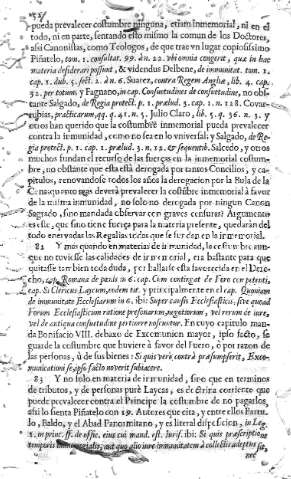 pueda prevalecer costumbre ninguna, etiam inmemorial, ni en el
todo, ni en parte, sentando esto mismo la comun de los Doctores,
assi Canonistas, como Teologos, de que trae vn lugar copiosissimo
Piñatelo, tom. 1. consultat. 99. àn. 22. vbi omnia congerit, quæ in hac
materia desiderari possunt, & videndus Delbene, de immunitat. tom. 1.
cap. 1. dub. 5. sect. 2. àn. 6. Suarez, contra Regem Angliæ, lib. 4. cap.
32. per totum y Fagnano, in cap. Consuetudines de consuetudine, no obs-
tante Salgado, de Regia protect. p. 1. prælud. 3. cap. 1. n. 128. Covar-
rubias, practicarum, qq. q. 41. n. 5. Julio Claro, lib. 5. q. 36. n. 3. y
otros han querido que la costumbre inmemorial pueda prevalecer
contra la inmunidad, como no sea en lo vniversal, y Salgado, de Re-
gia protect. p. 1. cap. 1. prælud. 5. n. 12. & sequentib. Salcedo, y otros
muchos fundan el recurso de las fuerças en la inmemorial costum-
bre, no obstante que esta està derogada por tantos Concilios, y ca-
pitulos, renovandose todos los años la derogacion por la Bula de la
Cena, que no niega deverà prevalecer la costumbre inmemorial à favor
de la misma inmunidad, no solo no derogada por ningun Canon
Sagrado, sino mandada observar con graves censuras? Argumento
es este, que sino tiene fuerça para la materia presente, quedaràn del
todo enervadas las Regalias todas que se fundan en la inmemorial.
82 Y mas quando en materias de inmunidad, la costumbre aun-
que no tuviesse las calidades de inmemorial, era bastante para que
quitasse tambien toda duda, por hallarse assi favorecida en el Dere-
cho, cap. Romana de pactis in 6. cap. Cum contingat de Foro competenti,
cap. Si Clericus Laicum, eodem tit. y principalmente en el cap. Quoniam
de immunitate Ecclesiarum in 6. ibi: Super causis Ecclesiasticis, sive quoad
Forum Ecclesiasticum ratione personarum, negotiorum, vel rerum de iure,
vel de antiqua consuetudine pertinere noscuntur. En cuyo capitulo man-
da Bonifacio VIII. debaxo de Excomunion mayor, ipso facto, se
guarde la costumbre que huviere à favor del Fuero, ò por razon de
las personas, ù de sus bienes: Si quis verò contrà præsumpserit, Exco-
municationi se ipso facto noverit subiacere.
83 Y no solo en materia de inmunidad, sino que en terminos
de tributos, y de personas purè Laycas, es de dotrina corriente que
puede prevalecer contra el Principe la costumbre de no pagarlos,
assi lo sienta Piñatelo con 19. Autores que cita, y entre ellos Baru-
lo, Baldo, y el Abad Panormitano, y es literal disposicion, in Leg.
1. in princ. ff. de offic. eius cui mand. est. Iurisd. ibi: Si quis præscriptione
temporis immemorialis, aut quo alio iure immunitatem à collectis adeptus sit,
nec